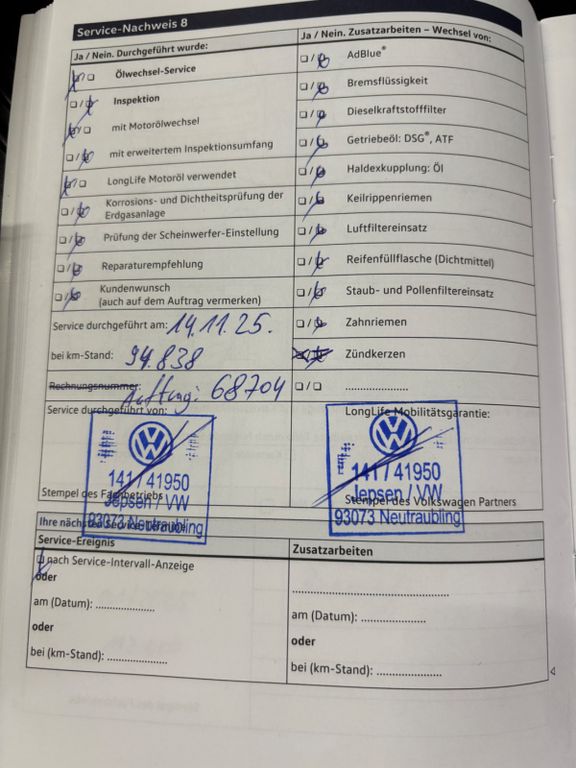 Service-Nachweis 8
Ja / Nein. Durchgeführt wurde:
☐/☐ Ölwechsel-Service
☐/☐ Inspektion
☐/☐ mit Motorölwechsel
☐/☐ mit erweitertem Inspektionsumfang
☐/☐ LongLife Motoröl verwendet
☐/☐ Korrosions- und Dichtheitsprüfung der
Erdgasanlage
☐/☐ Prüfung der Scheinwerfer-Einstellung
☐/☐ Reparaturempfehlung
☐/☐ Kundenwunsch
(auch auf dem Auftrag vermerken)
Service durchgeführt am: 14.11.25.
bei km-Stand: 94.838
Rechnungsnummer: Auftrag: 68704
Service durchgeführt von:
VW
141 / 41950
Jepsen / VW
93073 Neutraubling
Stempel des Fachbetriebs
Ja / Nein. Zusatzarbeiten – Wechsel von:
☐/☐ AdBlue®
☐/☐ Bremsflüssigkeit
☐/☐ Dieselkraftstofffilter
☐/☐ Getriebeöl: DSG®, ATF
☐/☐ Haldexkupplung: Öl
☐/☐ Keilrippenriemen
☐/☐ Luftfiltereinsatz
☐/☐ Reifenfüllflasche (Dichtmittel)
☐/☐ Staub- und Pollenfiltereinsatz
☐/☐ Zahnriemen
☐/☐ Zündkerzen
☐/☐ .....................
LongLife Mobilitätsgarantie:
VW
141 / 41950
Jepsen / VW
93073 Neutraubling
Stempel des Volkswagen Partners
Ihre nächsten Service-Termine
Service-Ereignis
☐ nach Service-Intervall-Anzeige
oder
am (Datum): ....................
oder
bei (km-Stand): ....................
Zusatzarbeiten
....................................................
am (Datum): ......................
oder
bei (km-Stand): ......................